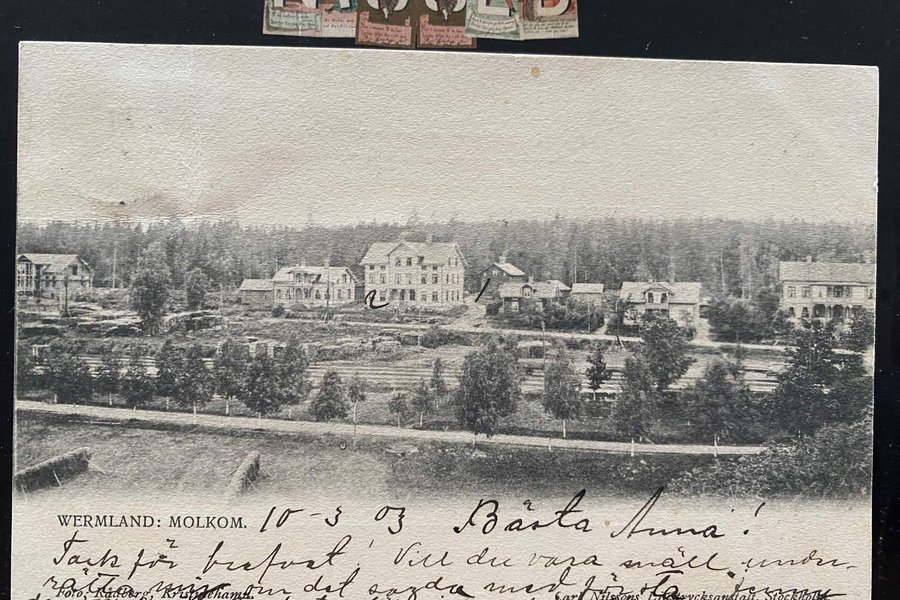 WERMLAND: MOLKOM. 10-3 03 Bästa Anna!
Tack för brefvet! Vill du vara snäll under-
rätta mig om det sagda med första
Foto. Kristinehamn. Carl Nilssons Ljustrycksanstalt, Stockholm